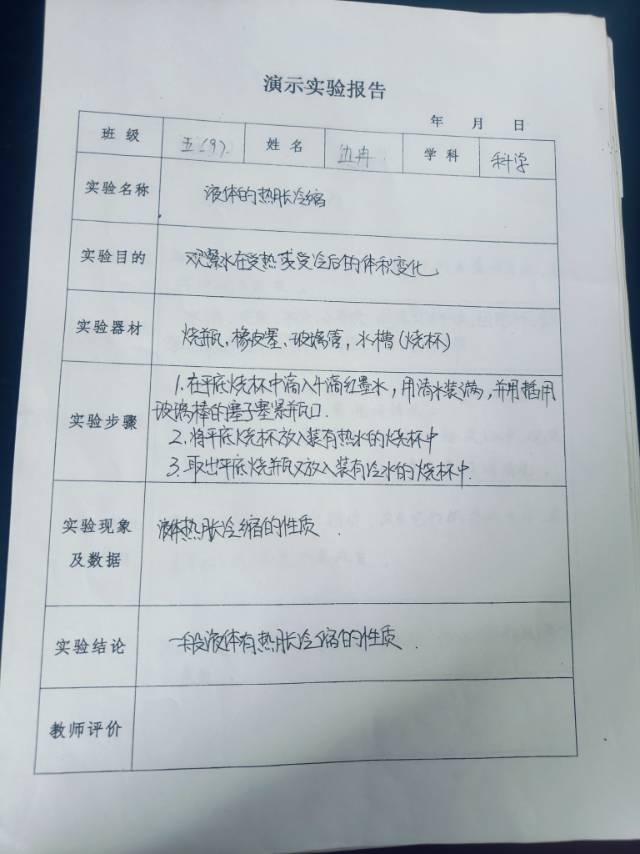 演示实验报告
年 月 日
班级 五(9). 姓名 边冉 学科 科学
实验名称 液体的热胀冷缩
实验目的 观察水在受热或受冷后的体积变化
实验器材 烧瓶、橡皮塞、玻璃管,水槽(烧杯)
1.在平底烧杯中滴入几滴红墨水,用清水装满,并用插用
实验步骤 玻璃棒的塞子塞紧瓶口.
2.将平底烧杯放入装有热水的烧杯中
3.取出平底烧瓶又放入装有冷水的烧杯中.
实验现象 液体热胀冷缩的性质.
及数据
实验结论 一般液体有热胀冷缩的性质.
教师评价